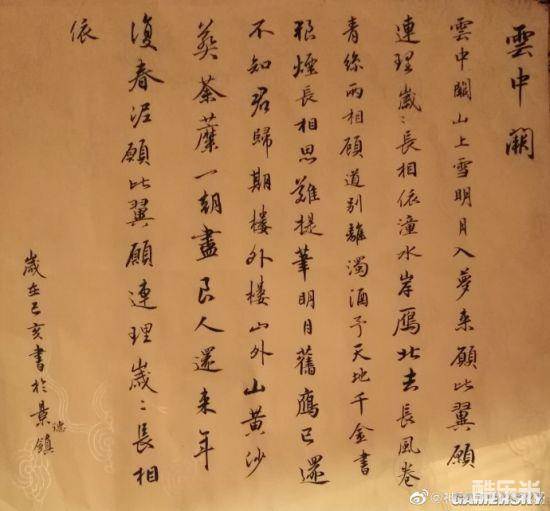 雲中闕
雲中闕山上雪明月入夢來願比翼願
連理歲々長相依潼水岸鴈北去長風卷
青絲兩相顧道別離濁酒予天地千金書
狼煙長相思難提筆明月舊鷹已還
不知君歸期樓外樓山外山黃沙
葵荼蘼一朝盡良人還來年
復春泥願比翼願連理歲々長相
依
歲在己亥書於景德鎮
酷乐米
GAMERSKY